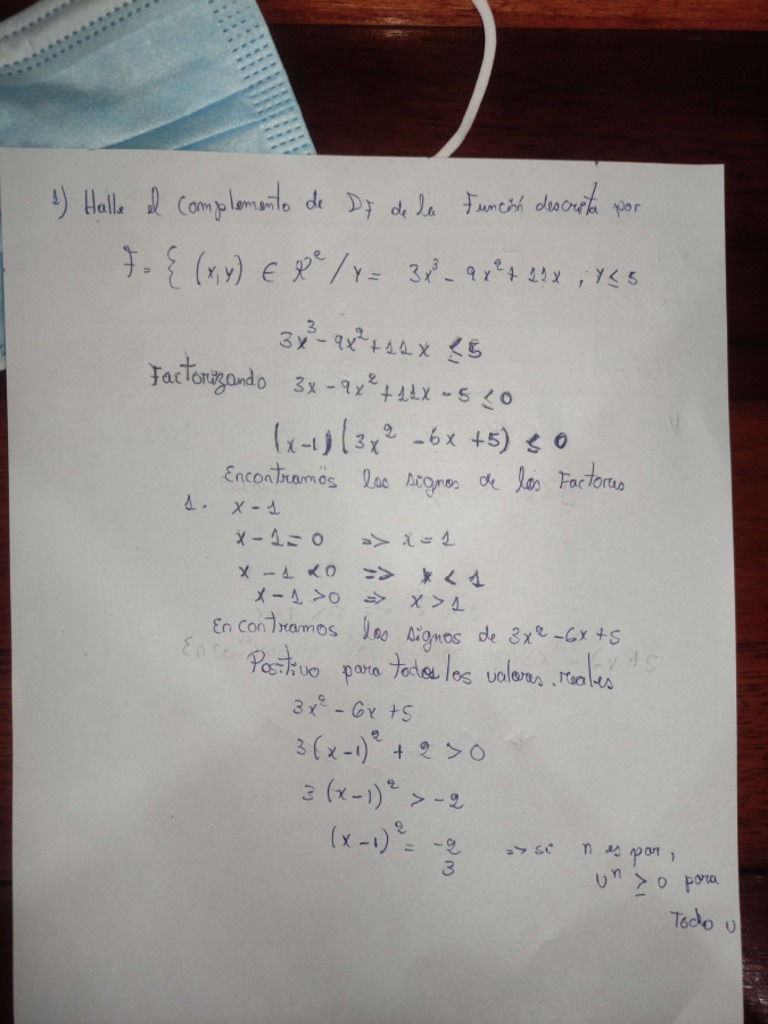 1) Halle el complemento de Df de la Función descrita por
F = { (x,y) ∈ R² / y = 3x³ - 9x² + 11x , y ≤ 5
3x³ - 9x² + 11x ≤ 5
Factorizando 3x - 9x² + 11x - 5 ≤ 0
(x-1) (3x² - 6x + 5) ≤ 0
Encontramos los signos de los Factores
1. x - 1
x - 1 = 0 => x = 1
x - 1 < 0 => x < 1
x - 1 > 0 => x > 1
Encontramos los signos de 3x² - 6x + 5
Positivo para todos los valores reales
3x² - 6x + 5
3(x-1)² + 2 > 0
3(x-1)² > -2
(x-1)² = -2/3 => si n es par,
uⁿ ≥ 0 para
Todo u